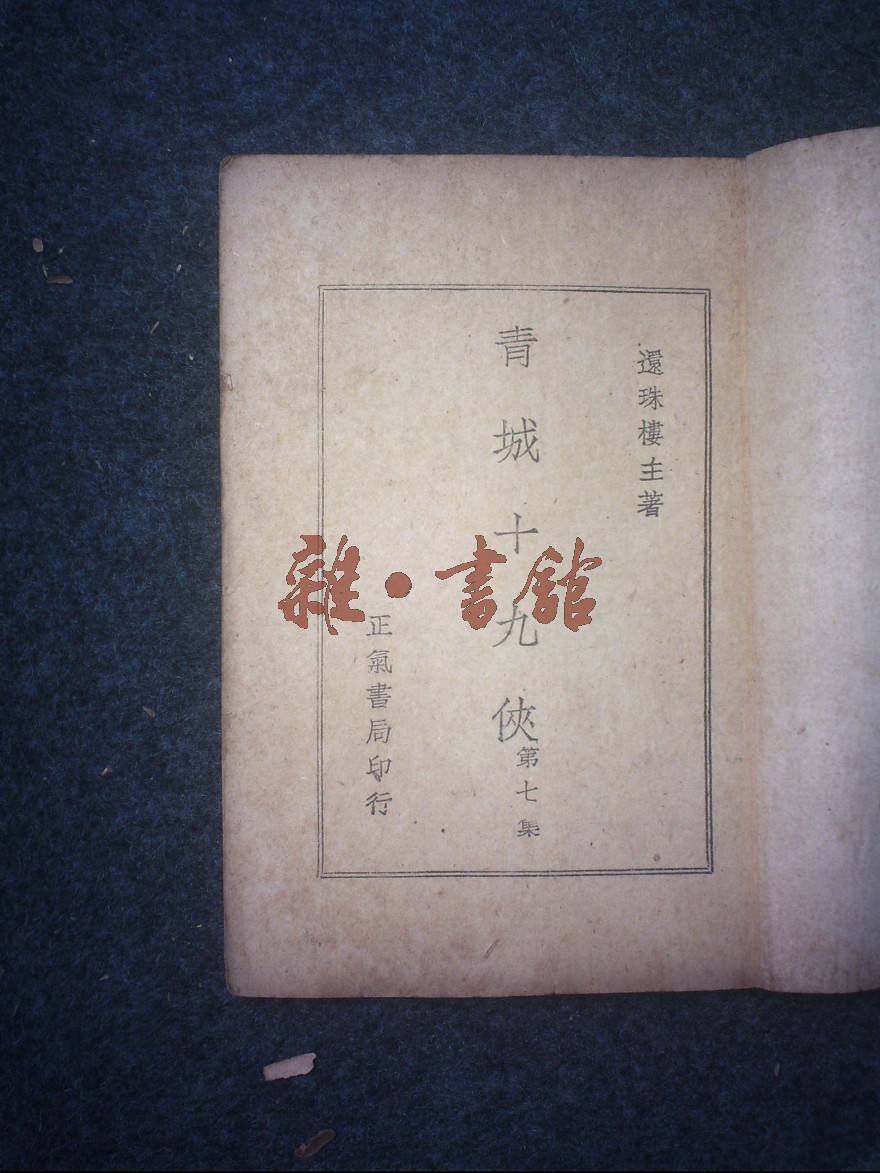 還珠樓主著
青城十九俠
第七集
正氣書局印行
雜·書館